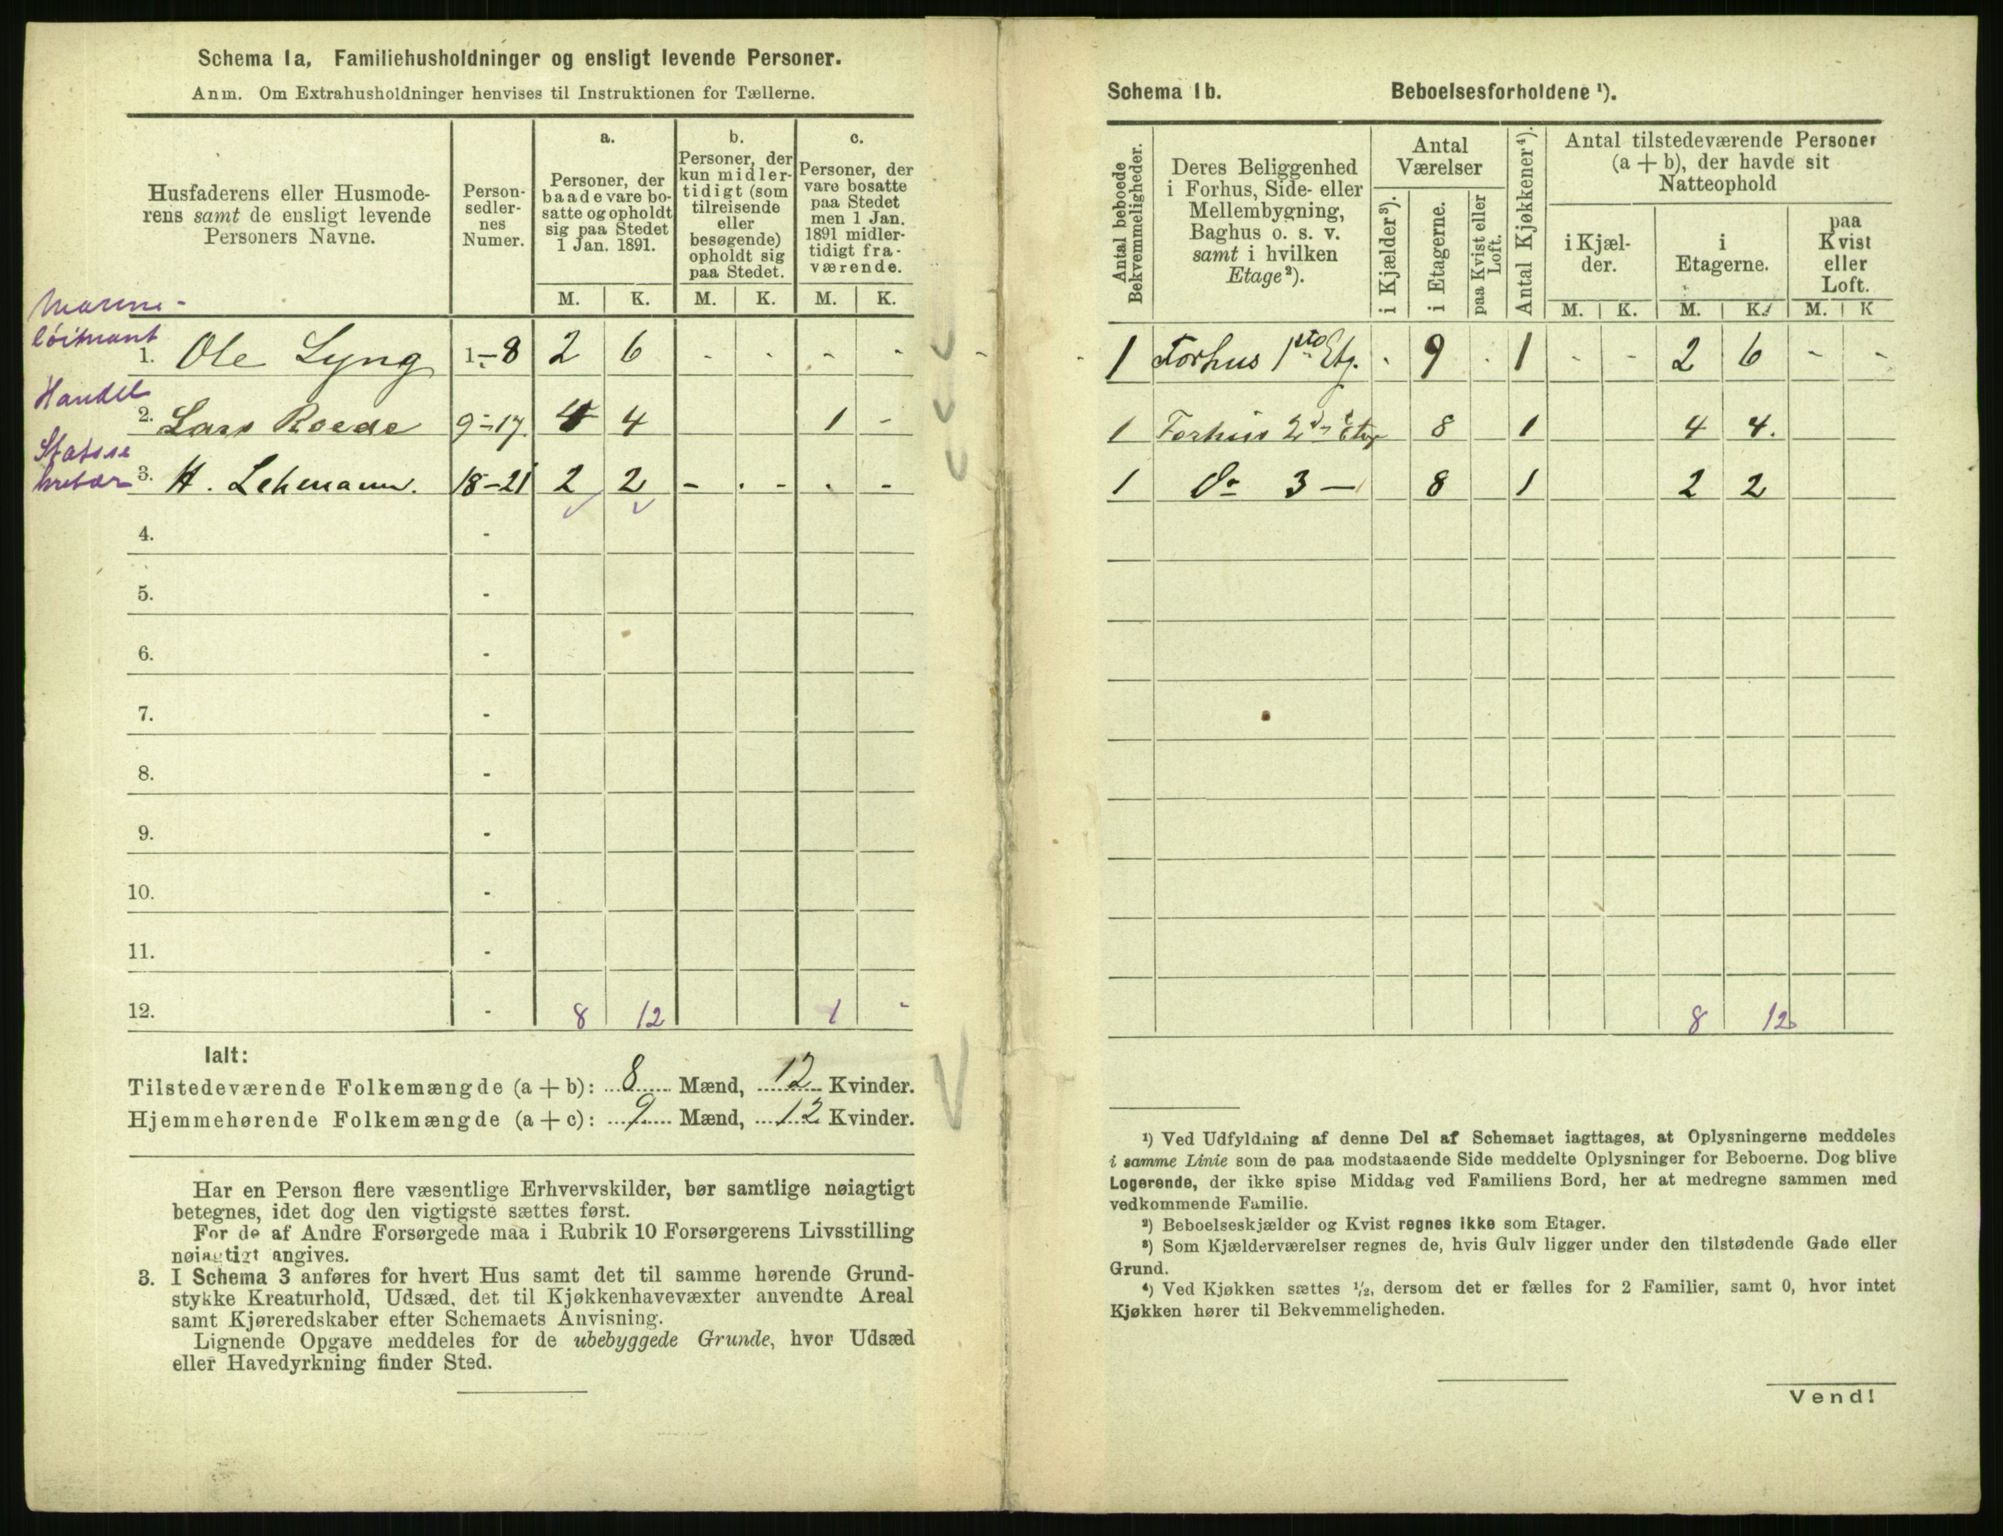 Schema 1a, Familiehusholdninger og ensligt levende Personer.
Anm. Om Extrahusholdninger henvises til Instruktionen for Tællerne.
Husfaderens eller Husmode-
rens samt de ensligt levende
Personers Navne.
Person-
sedler-
nes
Numer.
a.
Personer, der
baade vare bo-
satte og opholdt
sig paa Stedet
1 Jan. 1891.
b.
Personer, der
kun midler-
tidigt (som
tilreisende
eller
besøgende)
opholdt sig
paa Stedet.
c.
Personer, der
vare bosatte
paa Stedet
men 1 Jan.
1891 midler-
tidigt fra-
værende.
M. K. M. K. M. K.
Marine-
løitnant
1. Ole Lyng 1-8 2 6 - - - -
Handel
2. Lars Roede 9-17 4 4 1 -
Statsse
kretær
3. H. Lehmann. 18-21 2 2 - - - -
4. -
5. -
6. -
7. -
8. -
9. -
10. -
11. -
12. - 8 12 1 -
Ialt:
Tilstedeværende Folkemængde (a + b): 8 Mænd, 12 Kvinder.
Hjemmehørende Folkemængde (a + c): 9 Mænd, 12 Kvinder.
Har en Person flere væsentlige Erhvervskilder, bør samtlige nøiagtigt
betegnes, idet dog den vigtigste sættes først.
For de af Andre Forsørgede maa i Rubrik 10 Forsørgerens Livsstilling
nøiagtigt angives.
3. I Schema 3 anføres for hvert Hus samt det til samme hørende Grund-
stykke Kreaturhold, Udsæd, det til Kjøkkenhavevæxter anvendte Areal
samt Kjøreredskaber efter Schemaets Anvisning.
Lignende Opgave meddeles for de ubebyggede Grunde, hvor Udsæd
eller Havedyrkning finder Sted.
Schema 1b. Beboelsesforholdene ¹).
Antal beboede
Bekvemmeligheder.
Deres Beliggenhed
i Forhus, Side- eller
Mellembygning,
Baghus o. s. v.
samt i hvilken
Etage²).
Antal
Værelser
i Kjælder³).
i Etagerne.
paa Kvist eller
Loft.
Antal Kjøkkener⁴).
Antal tilstedeværende Personer
(a + b), der havde sit
Natteophold
i Kjæl-
der.
i
Etagerne.
paa
Kvist
eller
Loft.
M. K. M. K. M. K
1 Forhus 1ste Etg. - 9 - 1 - - 2 6 - -
1 Forhus 2den Etg 8 1 4 4.
1 Do 3 — 8 1 2 2
8 12
¹) Ved Udfyldning af denne Del af Schemaet iagttages, at Oplysningerne meddeles
i samme Linie som de paa modstaaende Side meddelte Oplysninger for Beboerne. Dog blive
Logerende, der ikke spise Middag ved Familiens Bord, her at medregne sammen med
vedkommende Familie.
²) Beboelseskjælder og Kvist regnes ikke som Etager.
³) Som Kjælderværelser regnes de, hvis Gulv ligger under den tilstødende Gade eller
Grund.
⁴) Ved Kjøkken sættes ½, dersom det er fælles for 2 Familier, samt 0, hvor intet
Kjøkken hører til Bekvemmeligheden.
Vend!